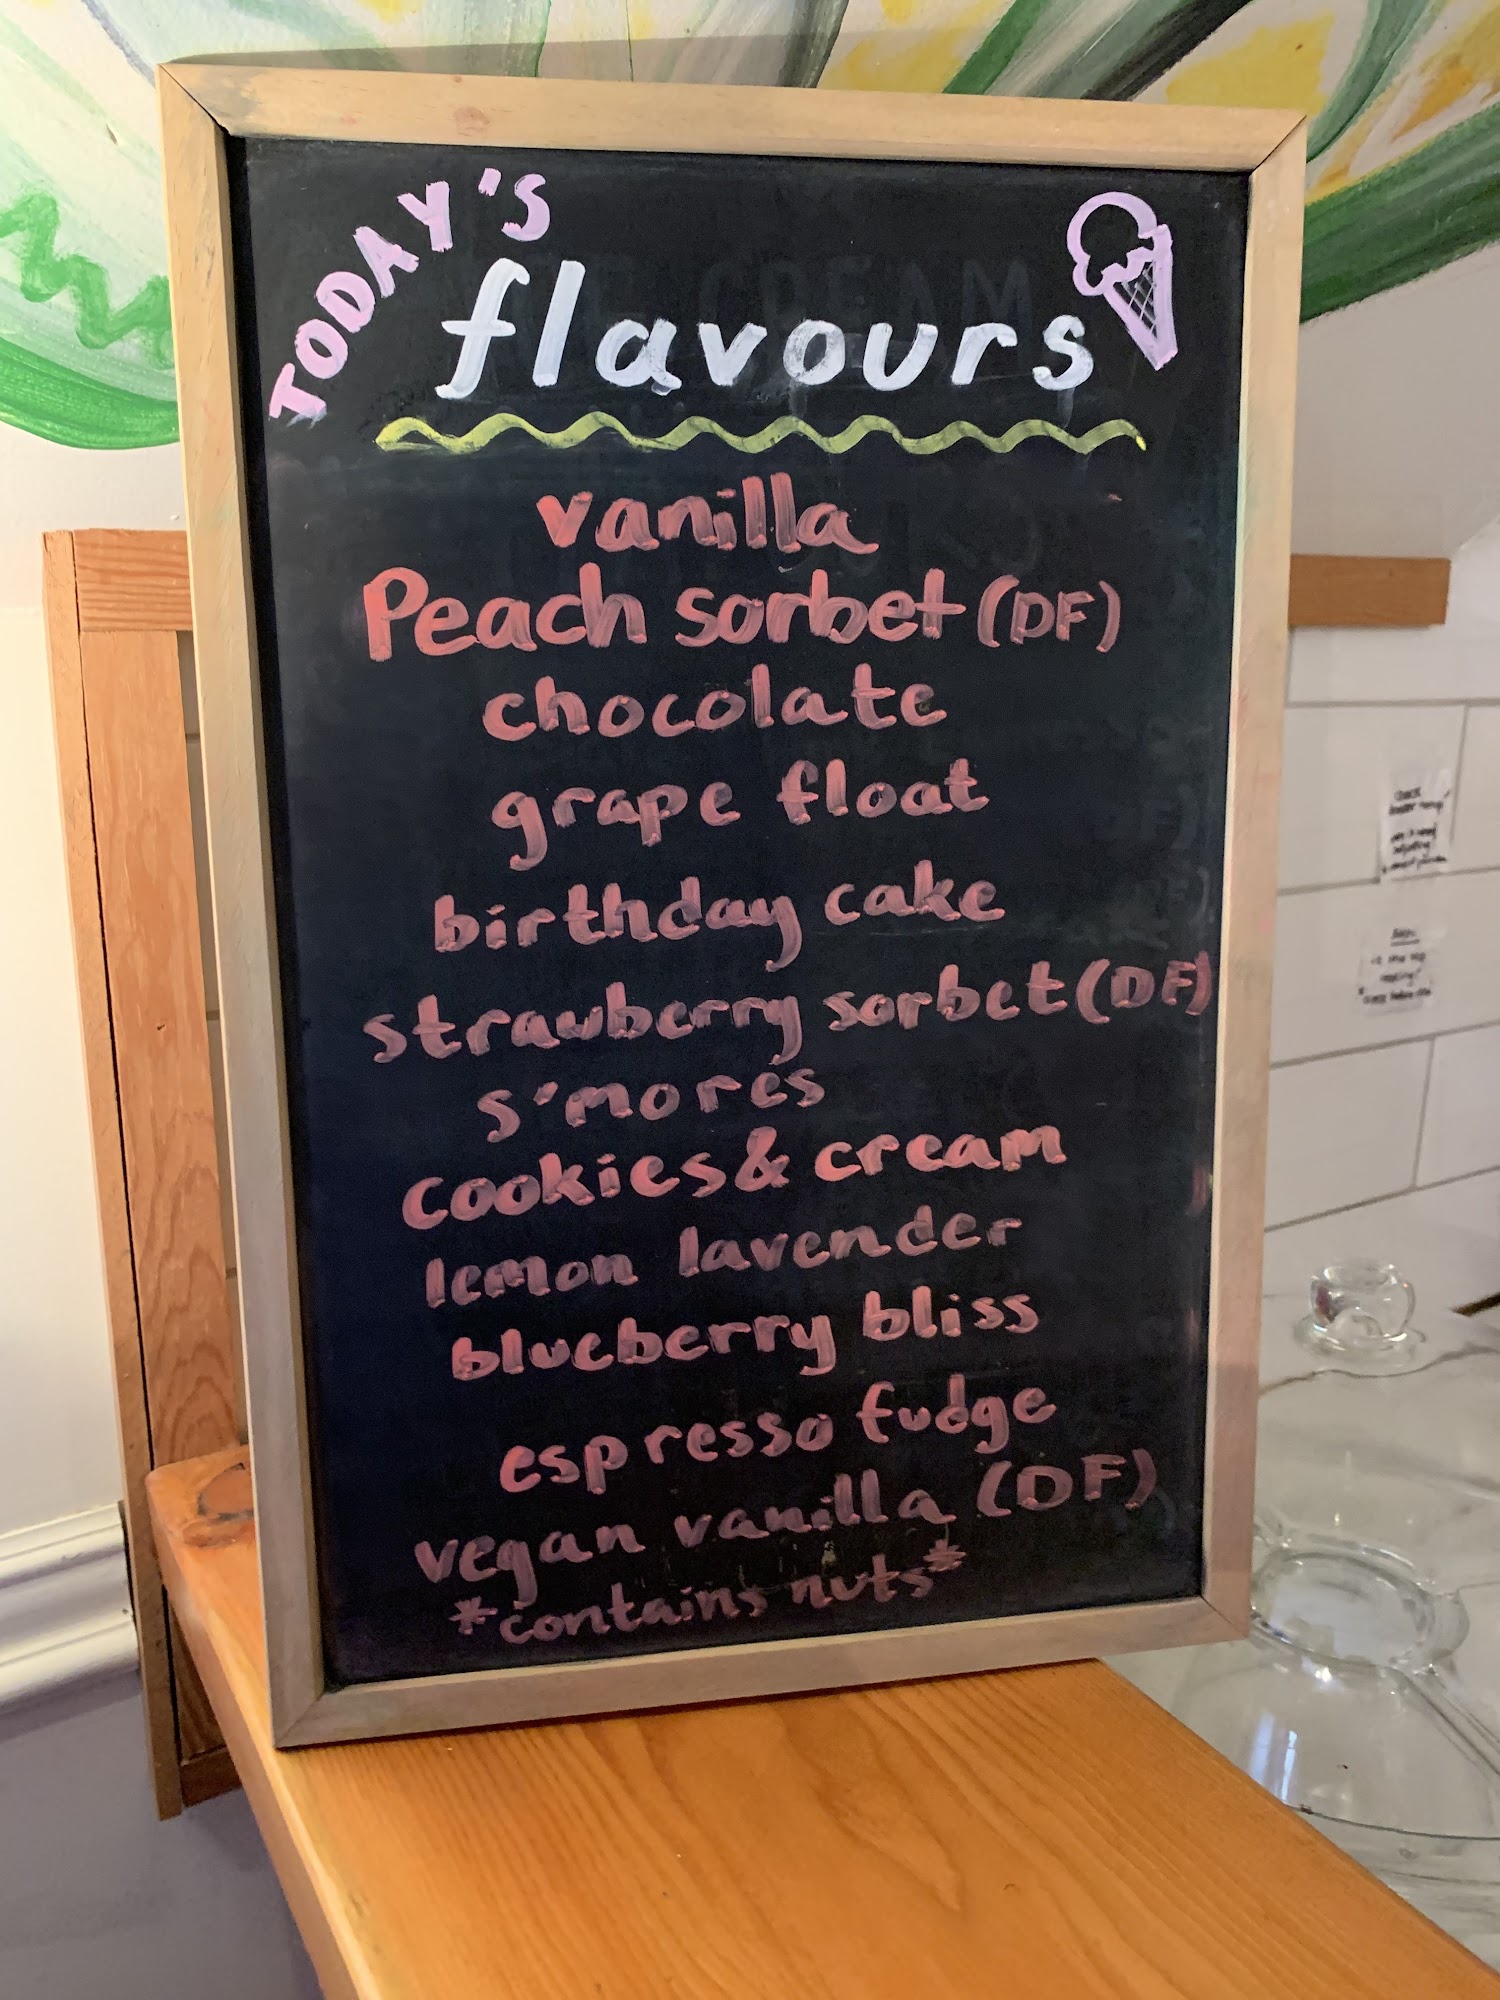 TODAY'S
flavours
vanilla
Peach sorbet (DF)
chocolate
grape float
birthday cake
strawberry sorbet (DF)
s'mores
cookies & cream
lemon lavender
blueberry bliss
espresso fudge
vegan vanilla (DF)
*contains nuts*